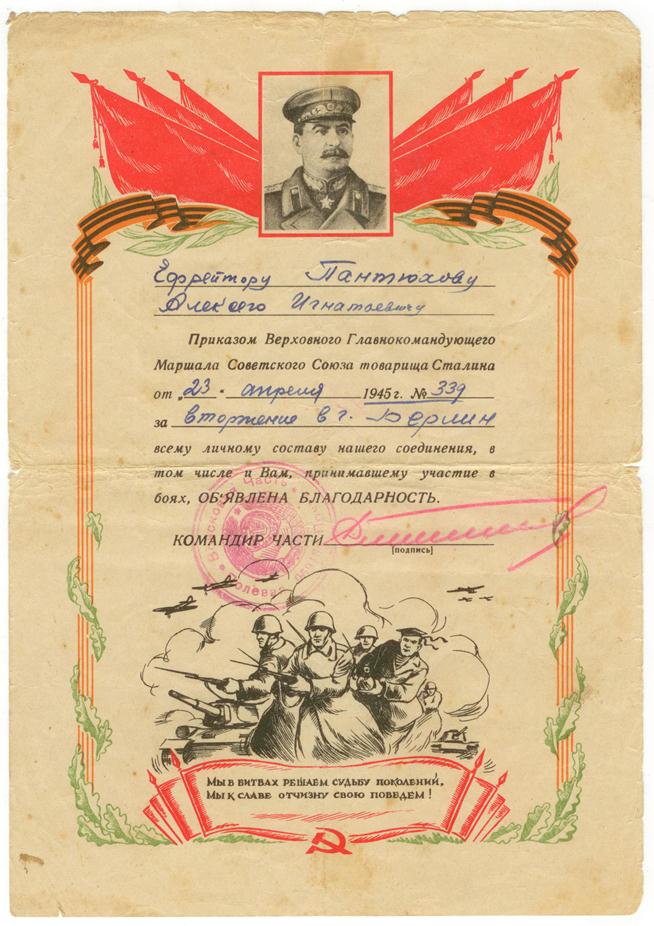 Ефрейтору Пантюхову
Алексею Игнатьевичу
Приказом Верховного Главнокомандующего
Маршала Советского Союза товарища Сталина
от „23 " апреля 1945 г. № 339
за вторжение в г. Берлин
всему личному составу нашего соединения, в
том числе и Вам, принимавшему участие в
боях, ОБ'ЯВЛЕНА БЛАГОДАРНОСТЬ.
КОМАНДИР ЧАСТИ
[подпись]
часть
Полевая
МЫ В БИТВАХ РЕШАЕМ СУДЬБУ ПОКОЛЕНИЙ,
МЫ К СЛАВЕ ОТЧИЗНУ СВОЮ ПОВЕДЕМ !